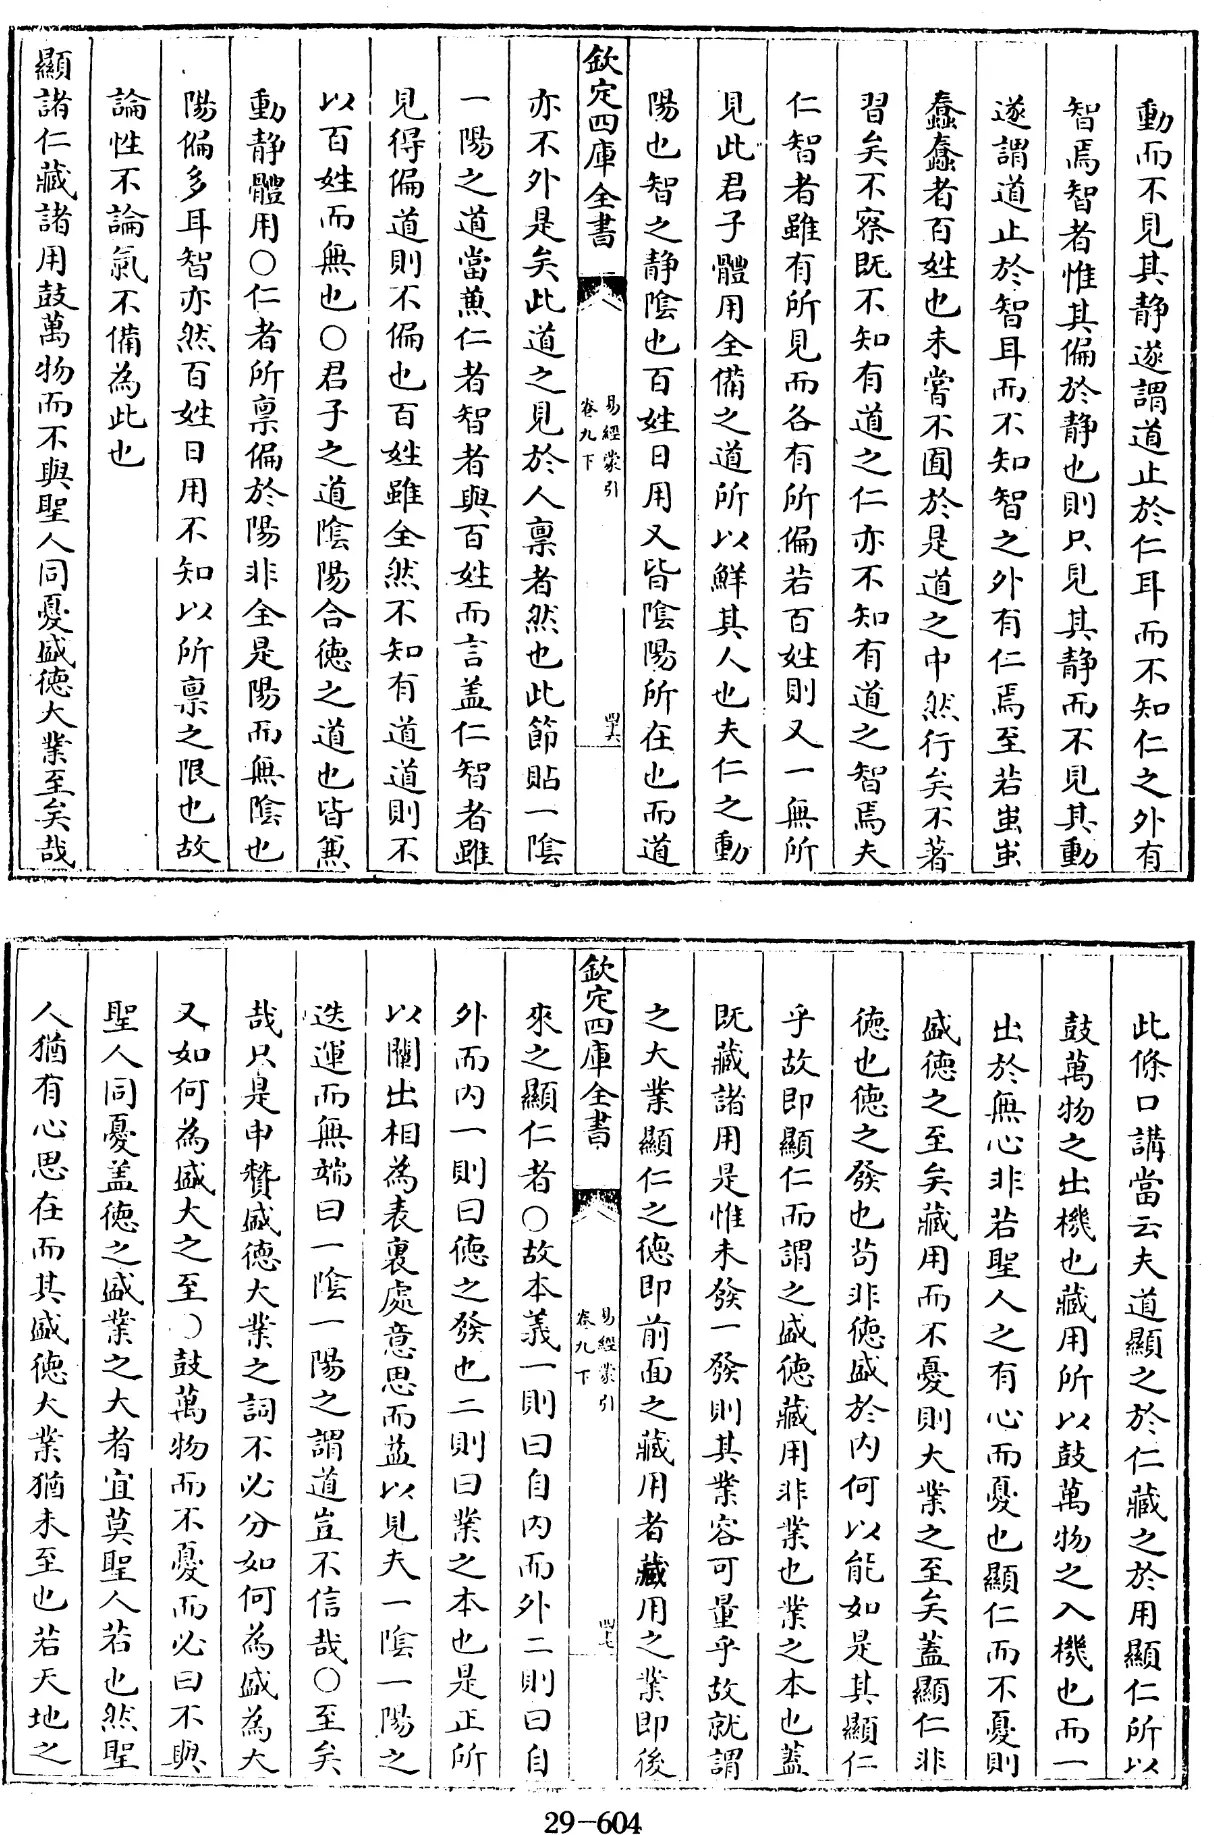 動而不見其靜遂謂道止於仁耳而不知仁之外有
智焉智者惟其偏於靜也則只見其靜而不見其動
遂謂道止於智耳而不知智之外有仁焉至若蚩蚩
蠢蠢者百姓也未嘗不囿於是道之中然行矣不著
習矣不察既不知有道之仁亦不知有道之智焉夫
仁智者雖有所見而各有所偏若百姓則又一無所
見此君子體用全備之道所以鮮其人也夫仁之動
陽也智之靜陰也百姓日用又皆陰陽所在也而道
欽定四庫全書
易經蒙引
卷九下
四十六
亦不外是矣此道之見於人禀者然也此節貼一陰
一陽之道當兼仁者智者與百姓而言蓋仁智者雖
見得偏道則不偏也百姓雖全然不知有道道則不
以百姓而無也○君子之道陰陽合德之道也皆兼
動靜體用○仁者所禀偏於陽非全是陽而無陰也
陽偏多耳智亦然百姓日用不知以所禀之限也故
論性不論氣不備為此也
顯諸仁藏諸用鼓萬物而不與聖人同憂盛德大業至矣哉
此條口講當云夫道顯之於仁藏之於用顯仁所以
鼓萬物之出機也藏用所以鼓萬物之入機也而一
出於無心非若聖人之有心而憂也顯仁而不憂則
盛德之至矣藏用而不憂則大業之至矣蓋顯仁非
德也德之發也茍非德盛於內何以能如是其顯仁
乎故即顯仁而謂之盛德藏用非業也業之本也蓋
既藏諸用是惟未發一發則其業容可量乎故就謂
之大業顯仁之德即前面之藏用者藏用之業即後
欽定四庫全書
易經蒙引
卷九下
四十七
來之顯仁者○故本義一則曰自內而外二則曰自
外而內一則曰德之發也二則曰業之本也是正所
以闡出相為表裏處意思而益以見夫一陰一陽之
迭運而無端曰一陰一陽之謂道豈不信哉○至矣
哉只是申贊盛德大業之詞不必分如何為盛為大
又如何為盛大之至○鼓萬物而不憂而必曰不與
聖人同憂蓋德之盛業之大者宜莫聖人若也然聖
人猶有心思在而其盛德大業猶未至也若天地之
29-604